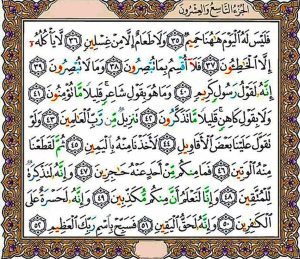 الجزء التاسع والعشرون
فَلَيْسَ لَهُ الْيَوْمَ هَاهُنَا حَمِيمٌ ٣٥ وَلَا طَعَامٌ إِلَّا مِنْ غِسْلِينٍ ٣٦ لَّا يَأْكُلُهُ
إِلَّا الْخَاطِئُونَ ٣٧ فَلَا أُقْسِمُ بِمَا تُبْصِرُونَ ٣٨ وَمَا لَا تُبْصِرُونَ ٣٩
إِنَّهُ لَقَوْلُ رَسُولٍ كَرِيمٍ ٤٠ وَمَا هُوَ بِقَوْلِ شَاعِرٍ قَلِيلًا مَّا تُؤْمِنُونَ ٤١
وَلَا بِقَوْلِ كَاهِنٍ قَلِيلًا مَّا تَذَكَّرُونَ ٤٢ تَنزِيلٌ مِّن رَّبِّ الْعَالَمِينَ ٤٣ وَلَوْ
تَقَوَّلَ عَلَيْنَا بَعْضَ الْأَقَاوِيلِ ٤٤ لَأَخَذْنَا مِنْهُ بِالْيَمِينِ ٤٥ ثُمَّ لَقَطَعْنَا
مِنْهُ الْوَتِينَ ٤٦ فَمَا مِنكُم مِّنْ أَحَدٍ عَنْهُ حَاجِزِينَ ٤٧ وَإِنَّهُ لَتَذْكِرَةٌ
لِّلْمُتَّقِينَ ٤٨ وَإِنَّا لَنَعْلَمُ أَنَّ مِنكُم مُّكَذِّبِينَ ٤٩ وَإِنَّهُ لَحَسْرَةٌ عَلَى
الْكَافِرِينَ ٥٠ وَإِنَّهُ لَحَقُّ الْيَقِينِ ٥١ فَسَبِّحْ بِاسْمِ رَبِّكَ الْعَظِيمِ ٥٢